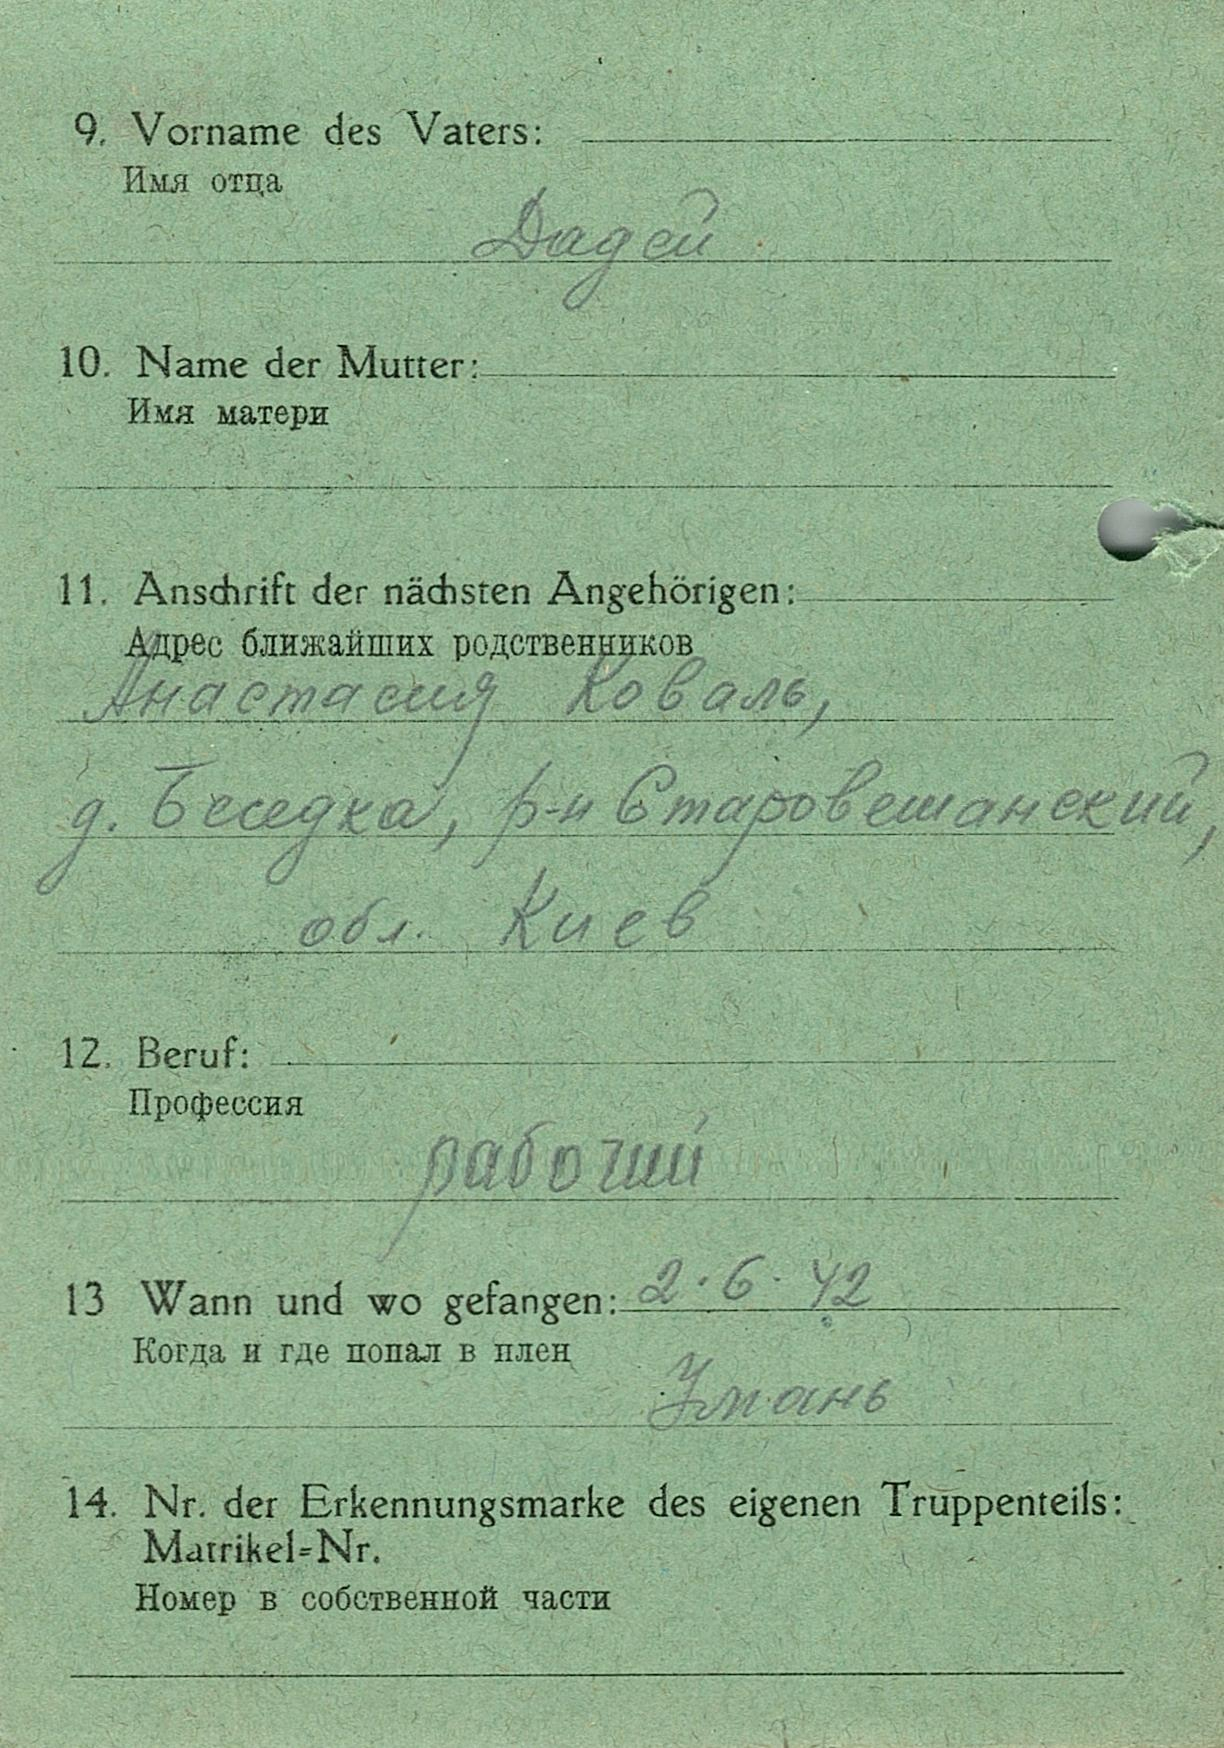 9. Vorname des Vaters:
Имя отца
Дадей
10. Name der Mutter:
Имя матери
11. Anschrift der nächsten Angehörigen:
Адрес ближайших родственников
Анастасия Коваль,
д. Беседка, р-н Старовешанский,
обл. Киев
12. Beruf:
Профессия
рабочий
13 Wann und wo gefangen: 2.6.42
Когда и где попал в плен
Умань
14. Nr. der Erkennungsmarke des eigenen Truppenteils:
Matrikel=Nr.
Номер в собственной части